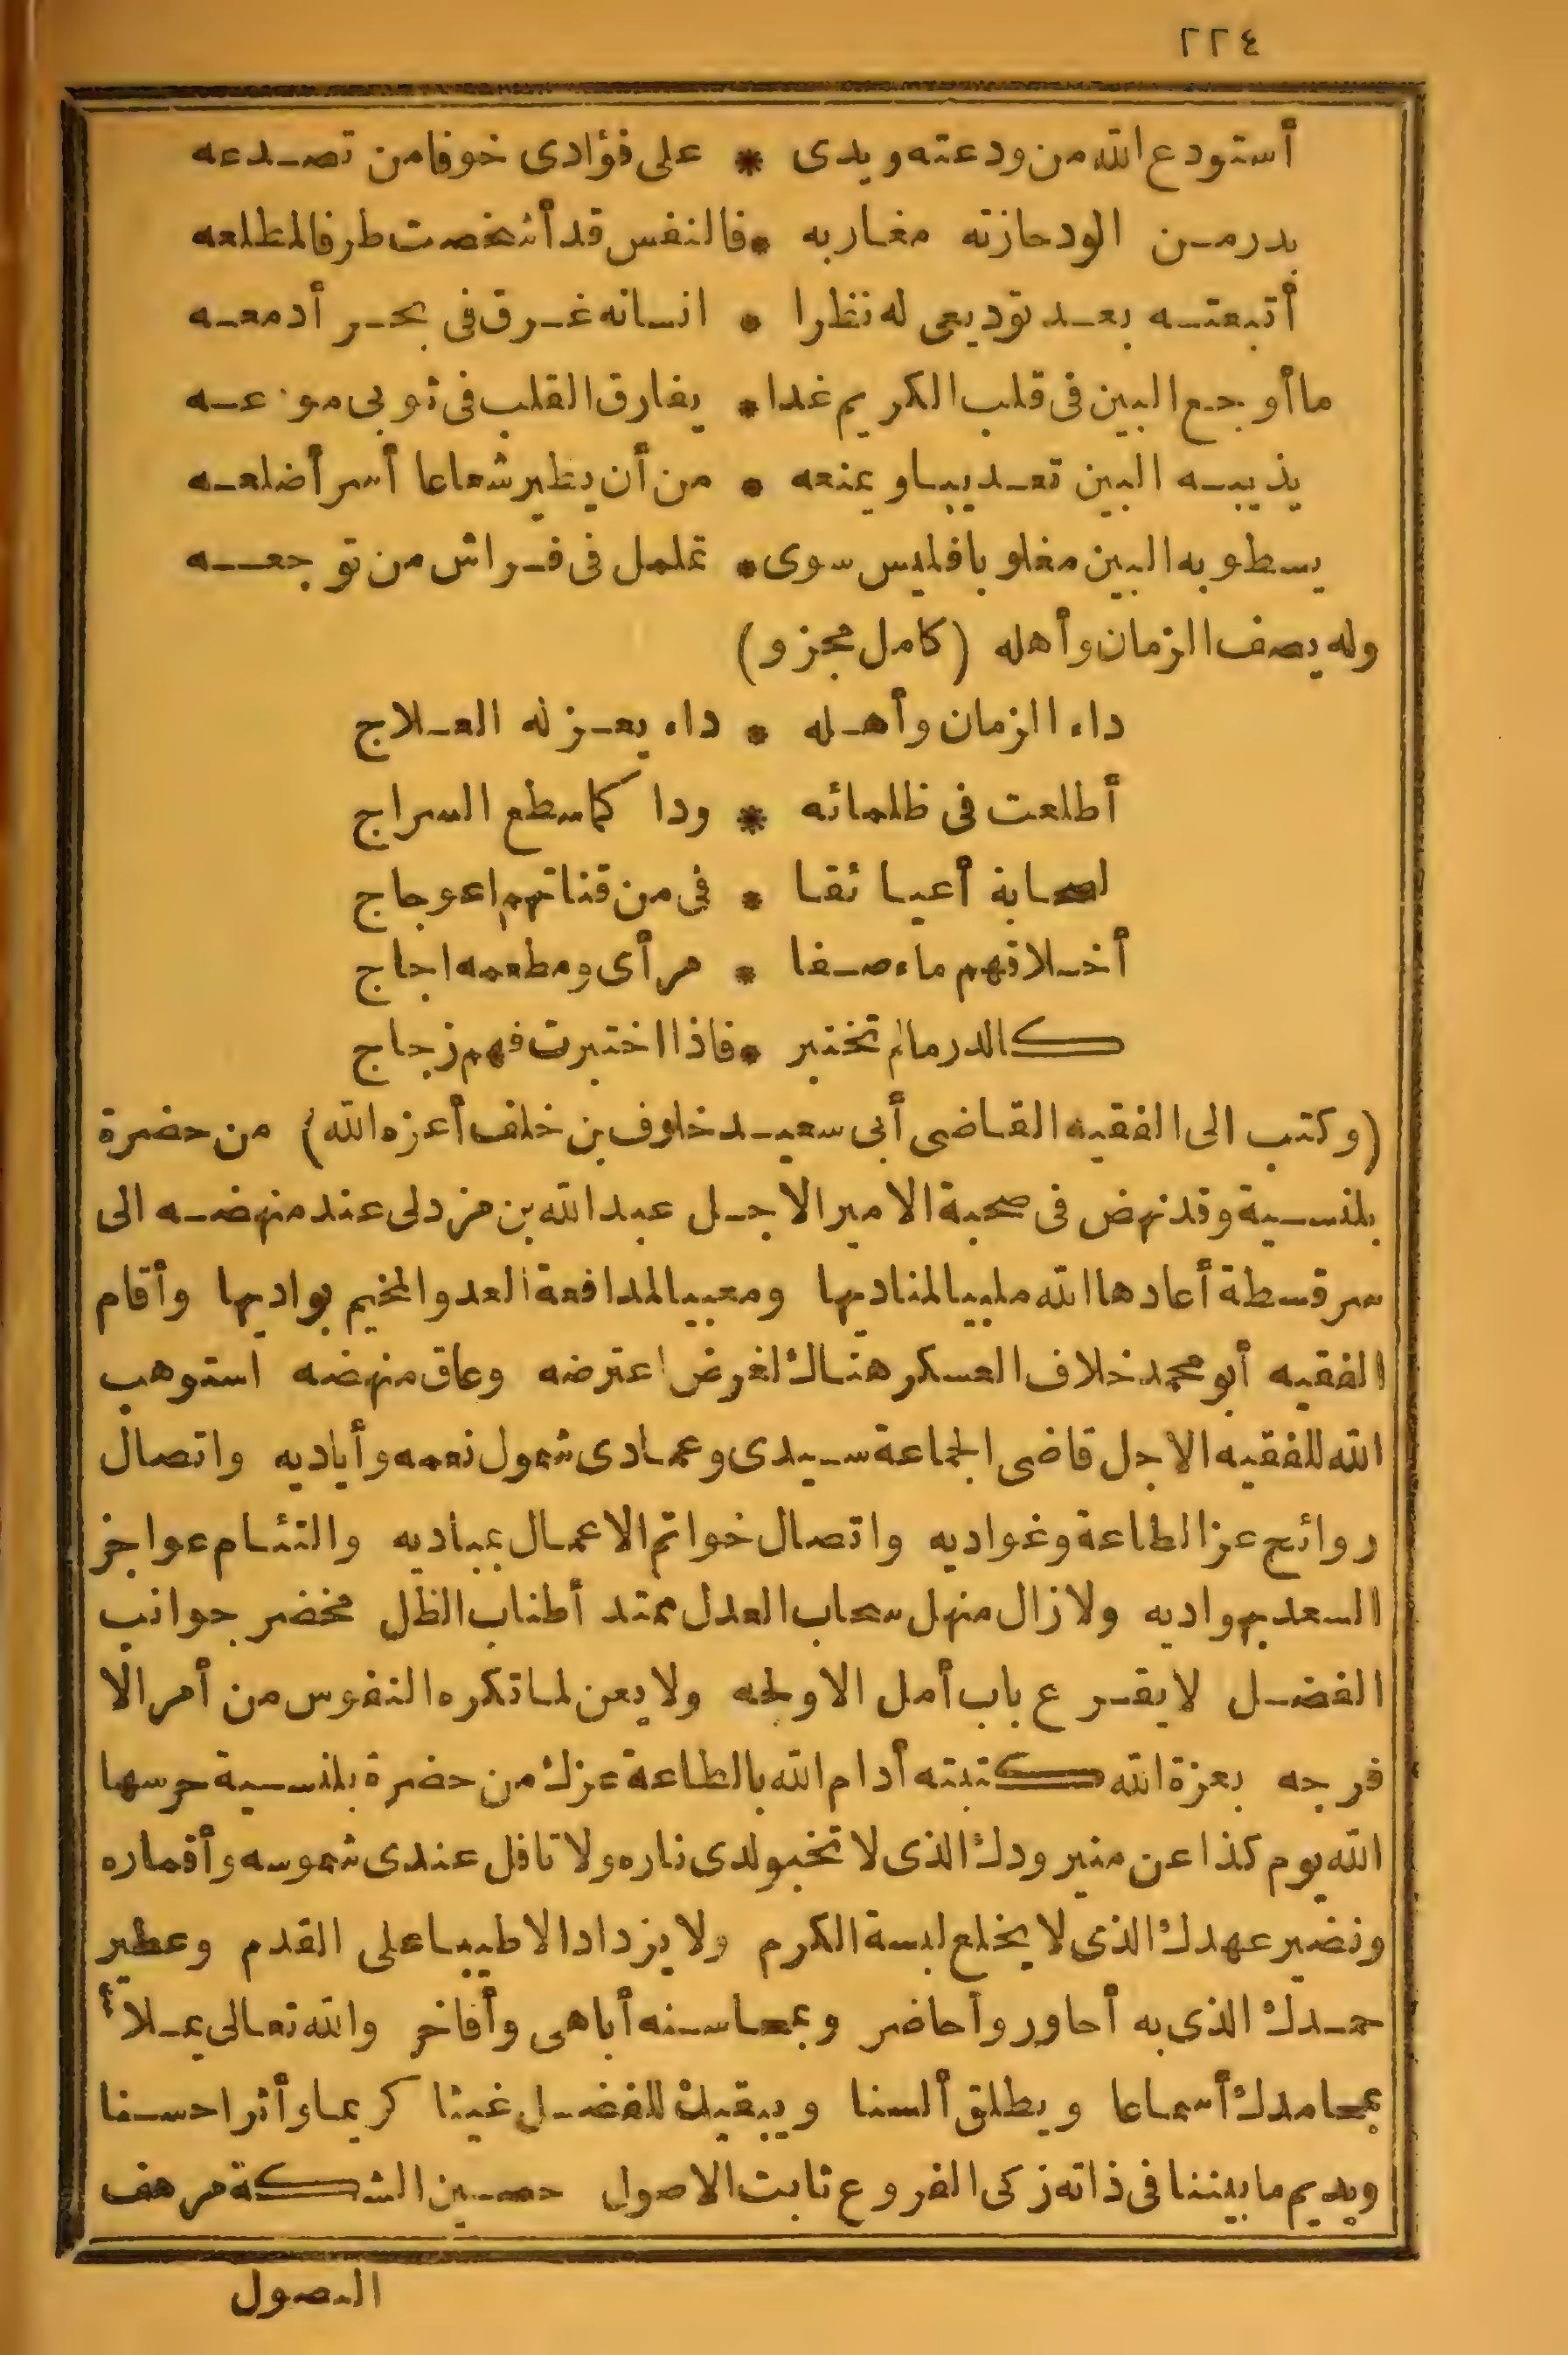 ٢٢٤
أستودع الله من ودعته ويدى * على فؤادى خوفا من تصدعه
بدر من الود حازته مغاربه * فالنفس قد أشخصت طرفا لمطلعه
أتبعته بعد توديعى له نظرا * انسانه غرق فى بحر أدمعه
ما أوجع البين فى قلب الكريم غدا * يفارق القلب فى ثوبى مودعه
يذيبه البين تعذيبا ويمنعه * من أن يطير شعاعا أسر أضلعه
يسطو به البين مغلوبا فليس سوى * تململ فى فراش من توجعه
وله يصف الزمان وأهله (كامل مجزو)
داء الزمان وأهله * داء يعز له العلاج
أطلعت فى ظلمائه * ودا كما سطع السراج
لصحابة أعيا ثقا * فى من قناتهم اعوجاج
أخلاقهم ماء صفا * مرأى ومطعمه اجاج
كالدر مالم تختبر * فاذا اختبرت فهم زجاج
(وكتب الى الفقيه القاضى أبى سعيد خلوف بن خلف أعزه الله) من حضرة
بلنسية وقد نهض فى صحبة الامير الاجل عبد الله بن مزدلى عند منهضه الى
سرقسطة أعادها الله ملبيا لمناديها ومعبيا لمدافعة العدو المخيم بواديها وأقام
الفقيه أبو محمد خلاف العسكر هنالك لغرض اعترضه وعاق منهضه استوهب
الله للفقيه الاجل قاضى الجماعة سيدى وعمادى شمول نعمه وأياديه واتصال
روائح عز الطاعة وغواديه واتصال خواتم الاعمال بمباديه والتئام عواجز
السعد بهواديه ولا زال منهل سحاب العدل ممتد أطناب الظل مخضر جوانب
الفضل لا يقرع باب أمل الا ولجه ولا يعن لما تكره النفوس من أمر الا
فرجه بعزة الله كتبته أدام الله بالطاعة عزك من حضرة بلنسية حرسها
الله يوم كذا عن منير ودك الذى لا تخبو لدى ناره ولا تافل عندى شموسه وأقماره
ونضير عهدك الذى لا يخلع لبسة الكرم ولا يزداد الا طيبا على القدم وعطير
حمدك الذى به أحاور وأحاضر وبمحاسنه أباهى وأفاخر والله تعالى يملأ
بمحامدك أسماعا ويطلق ألسنا ويبقيك للفضل غيثا كريما وأثرا حسنا
ويديم ما بيننا فى ذاته زكى الفروع ثابت الاصول حصين الشكة مرهف
النصول